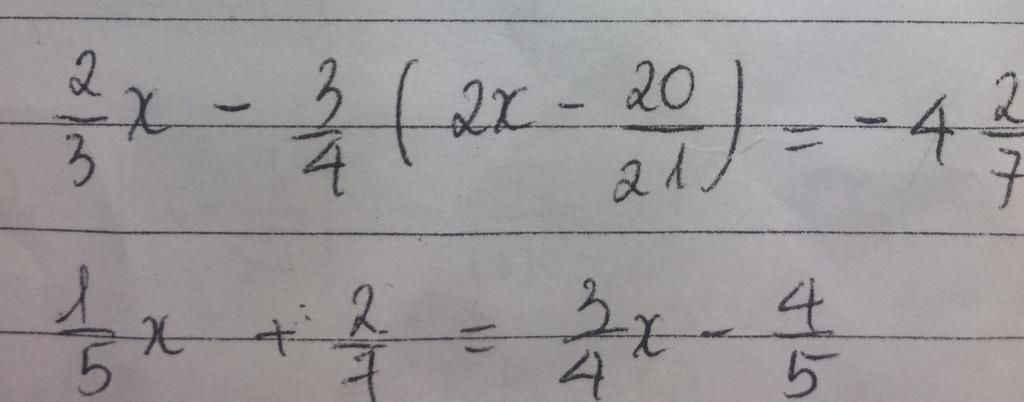 2/3 x - 3/4 ( 2x - 20/21 ) = - 4 2/7
1/5 x + 2/7 = 3/4 x - 4/5